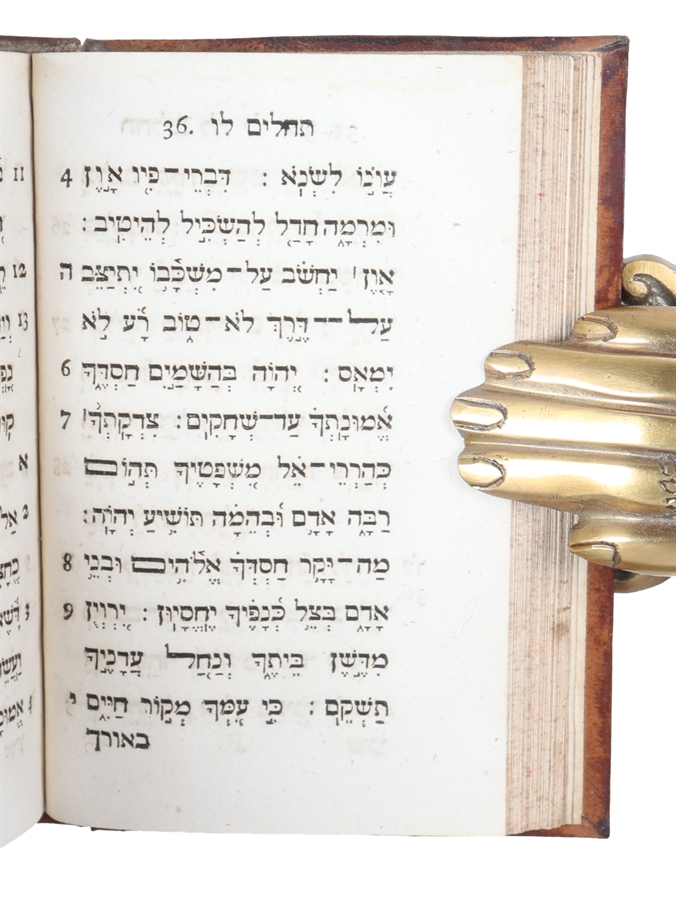 תהלים לו .36
עֲוֺנ֣וֹ לִשְׂנֹֽא : דִּבְרֵי־פִ֭יו אָ֣וֶן 4
וּמִרְמָ֑ה חָדַ֖ל לְהַשְׂכִּ֣יל לְהֵיטִֽיב :
אָ֤וֶן ׀ יַחְשֹׁ֗ב עַל־מִשְׁכָּ֫ב֥וֹ יִ֭תְיַצֵּב ה
עַל־דֶּ֣רֶךְ לֹא־ט֑וֹב רָ֝֗ע לֹ֣א
יִמְאָֽס : יְ֭הוָה בְּהַשָּׁמַ֣יִם חַסְדֶּ֑ךָ 6
אֱ֝מֽוּנָתְךָ֗ עַד־שְׁחָקִֽים : צִדְקָֽתְךָ֨ ׀ 7
כְּֽהַרְרֵי־אֵ֗ל מִ֭שְׁפָּטֶיךָ תְּה֣וֹם
רַבָּ֑ה אָ֤דָֽם וּבְהֵמָ֖ה תוֹשִׁ֣יעַ יְהוָֽה :
מַה־יָּקָ֥ר חַסְדְּךָ֗ אֱלֹ֫הִ֥ים וּבְנֵ֥י 8
אָדָ֑ם בְּצֵ֥ל כְּ֝נָפֶ֗יךָ יֶחֱסָיֽוּן : יִ֭רְוְיֻן 9
מִדֶּ֣שֶׁן בֵּיתֶ֑ךָ וְנַ֖חַל עֲדָנֶ֣יךָ
תַשְׁקֵֽם : כִּֽי עִ֭מְּךָ מְק֣וֹר חַיִּ֑ים י
באורך
11
12
13
א
2
3
4